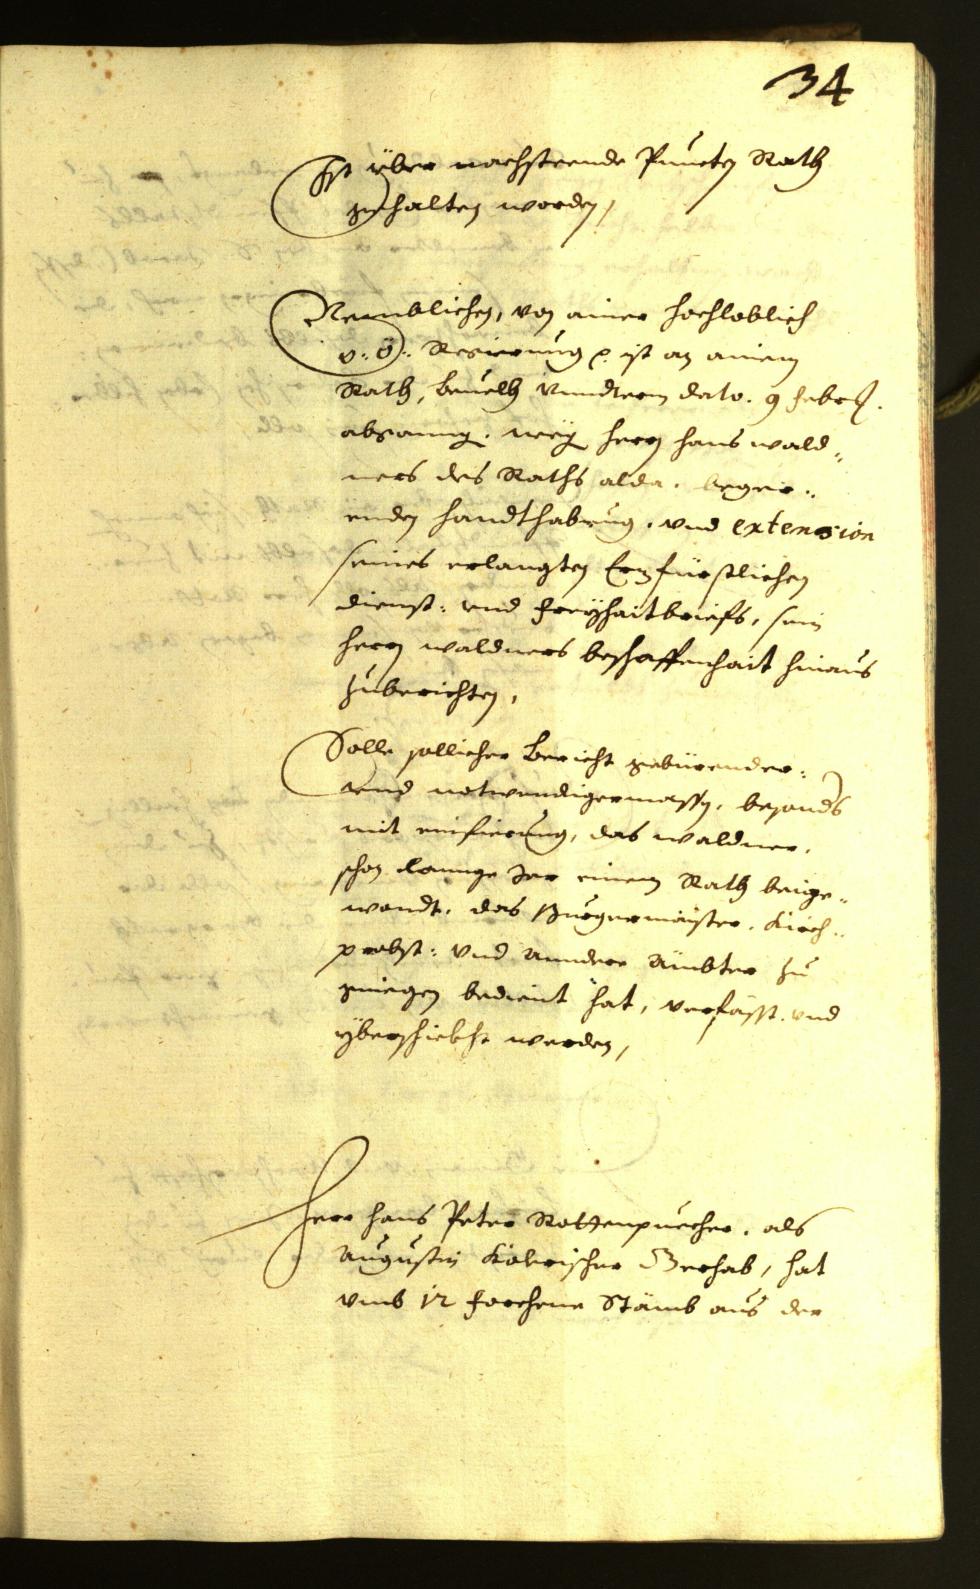 34
Ist über nachsteende Puncten Rath
gehalten worden,
Nemblichen, von ainer hochloblich
o: ö: Regierung p. ist an ainen
Rath, Beuelh vnndterm dato. 9 Febr.
abganng. weg: herrn Hans Wald„
ners des Raths alda. begeer„
enden handthabung. vnd extension
seines erlangten Erzfürstlichen
dienst: vnd Freyhaitbriefs, sein
herrn Waldners beschaffenhait hinaus
zuberichten,
Solle sollicher Bericht gebürender:
vnd notwendigermassen, besonders
mit einfierung, das Waldner,
schon lannge Jar einem Rath beige„
wondt. das Burgermaister. Kirch„
probst: vnd anndere Ämbter zu
gniegen bedient hat, verfasst. vnd
yberschickht werden,
Herr Hans Peter Rottenpuecher. als
Augustin Kölerischer Gerhab, hat
vmb 12 forchene Stämb aus der